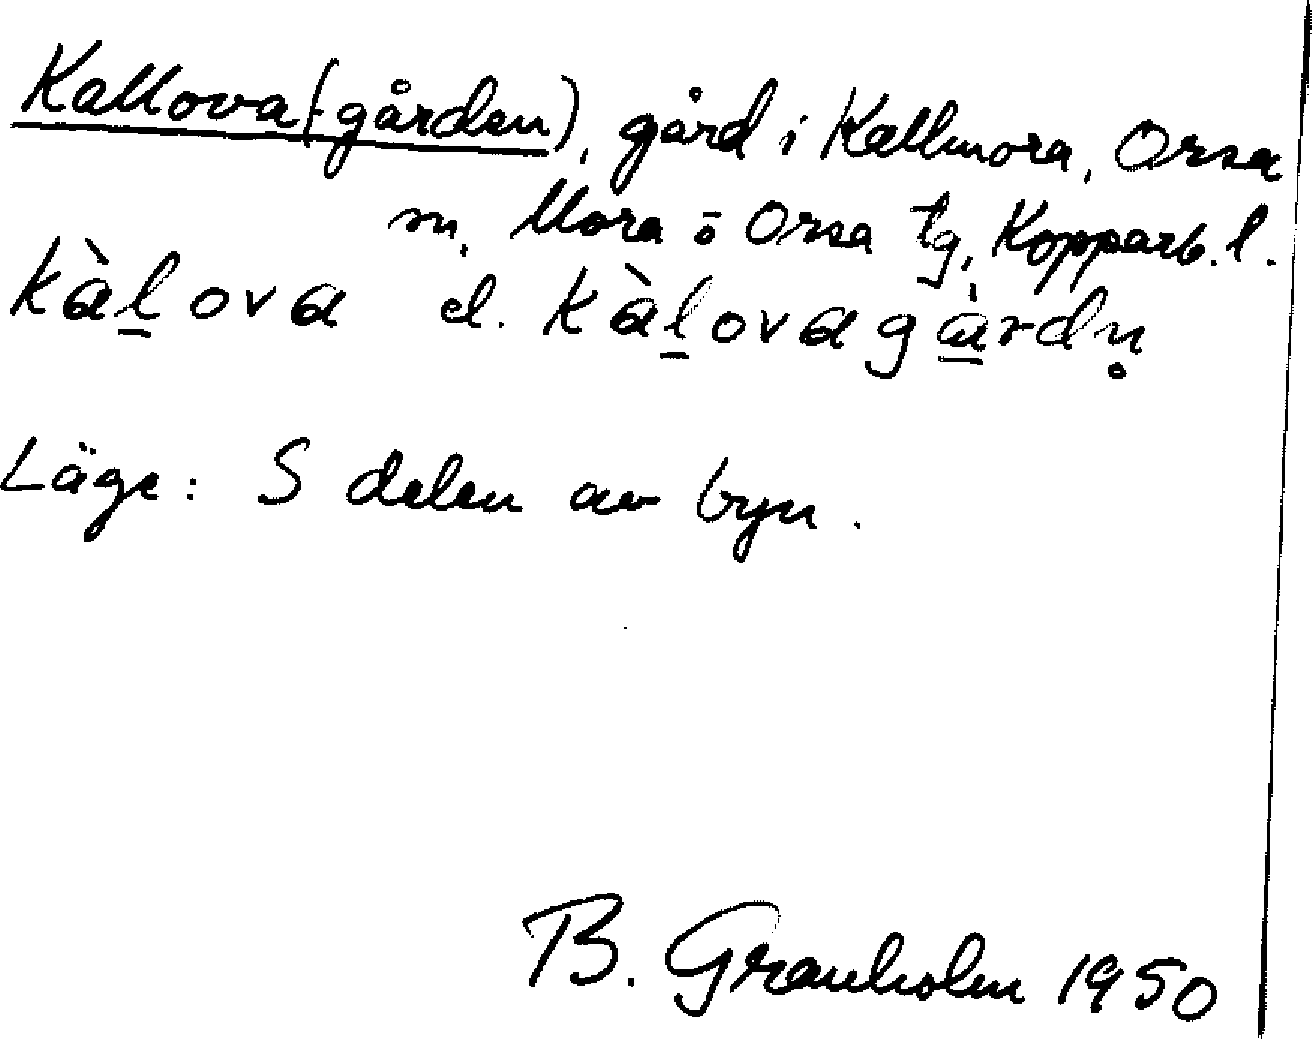 Kallova(-gården), gård i Kallmora, Orsa
sn, Mora o Orsa tg, Kopparb. l.
kàl̲ova el. kàl̲ovagà̲rdn̥
Läge: S delen av byn.
B. Granholm 1950